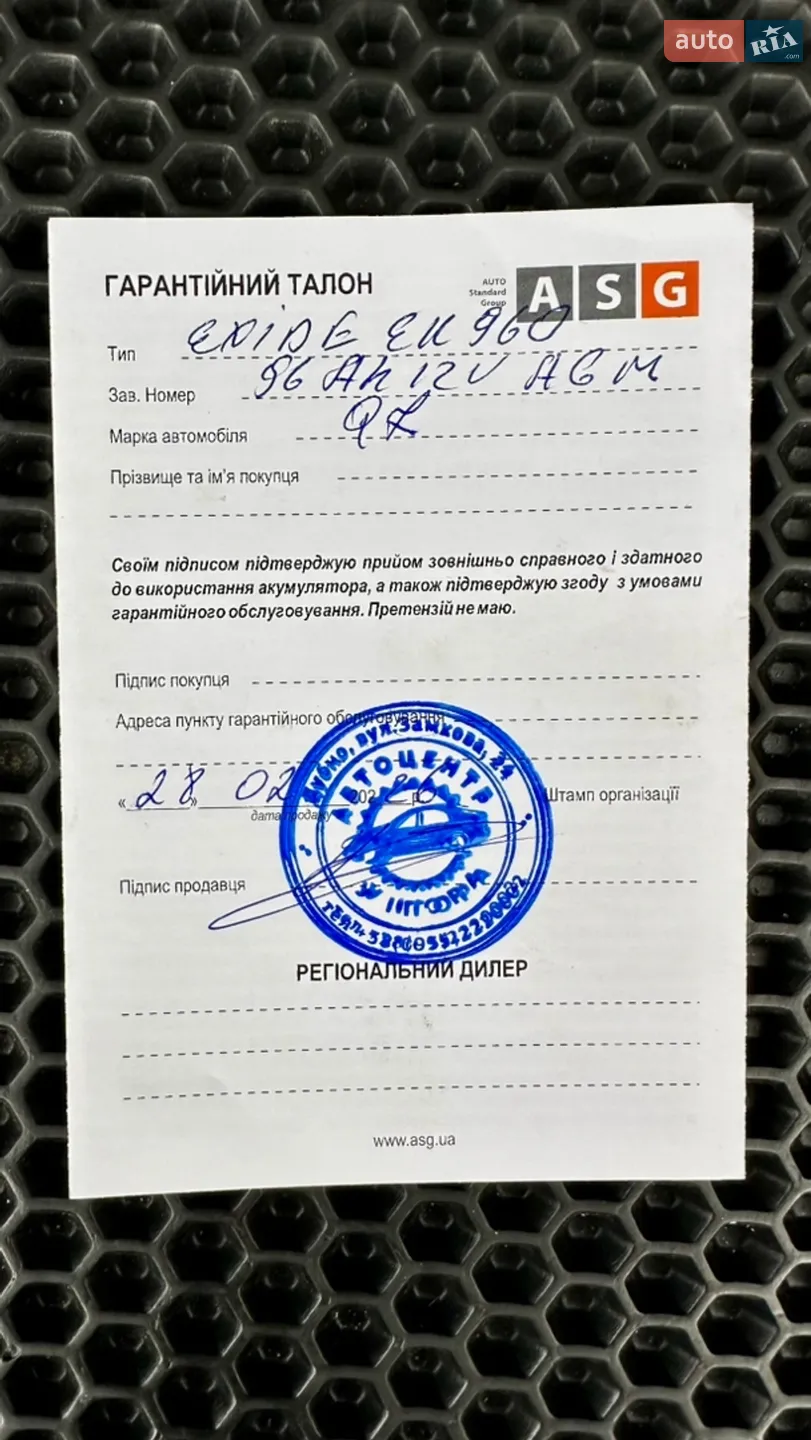 auto RIA .com
ГАРАНТІЙНИЙ ТАЛОН
AUTO Standard Group
ASG
Тип EXIDE EK960
Зав. Номер 96Ah 12V AGM
Марка автомобіля Q7
Прізвище та ім'я покупця
Своїм підписом підтверджую прийом зовнішньо справного і здатного
до використання акумулятора, а також підтверджую згоду з умовами
гарантійного обслуговування. Претензій не маю.
Підпис покупця
Адреса пункту гарантійного обслуговування
Дубно, вул. Замкова, 24
АВТОЦЕНТР
« 28 » 02 202 6 р
дата продажу
Штамп організації
Підпис продавця
РЕГІОНАЛЬНИЙ ДИЛЕР
www.asg.ua